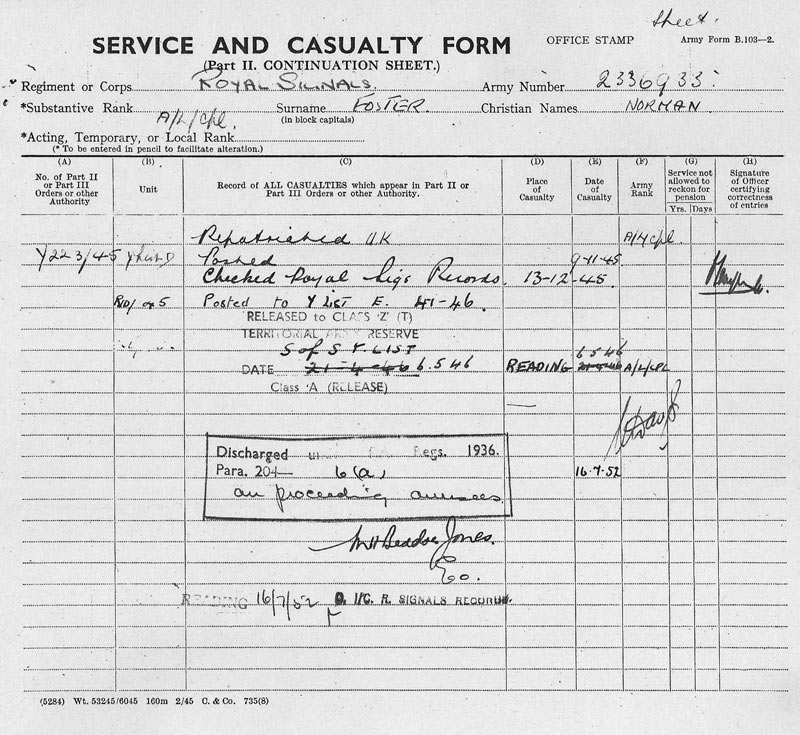 Sheet.
SERVICE AND CASUALTY FORM OFFICE STAMP Army Form B.103—2.
(Part II. CONTINUATION SHEET.)
Regiment or Corps ROYAL SIGNALS. Army Number 2336933.
*Substantive Rank Surname FOSTER. Christian Names NORMAN.
(in block capitals)
A/L/Cpl.
*Acting, Temporary, or Local Rank
(* To be entered in pencil to facilitate alteration.)
(A) (B) (C) (D) (E) (F) (G) (H)
No. of Part II or Part III Orders or other Authority
Unit
Record of ALL CASUALTIES which appear in Part II or Part III Orders or other Authority.
Place of Casualty
Date of Casualty
Army Rank
Service not allowed to reckon for pension
Yrs. Days
Signature of Officer certifying correctness of entries
Repatriated UK A/L/Cpl.
Y223/45 Y List D Posted 9-11-45
Checked Royal Sigs Records. 13-12-45.
45 Posted to Y LIST E. 4-1-46.
RELEASED to CLASS 'Z' (T)
TERRITORIAL ARMY RESERVE
S of S Y LIST 6 5 46
DATE 21-4-46 6.5.46 READING 21-4-46 A/L/CPL
Class 'A (RELEASE)
Discharged Regs. 1936.
Para. 204— 6(a) 16.7.52
on proceeding
Jones.
READING 16/7/52 O. I/C. R. SIGNALS RECORDS.
(5284) Wt. 53245/6045 160m 2/45 C. & Co. 735(8)